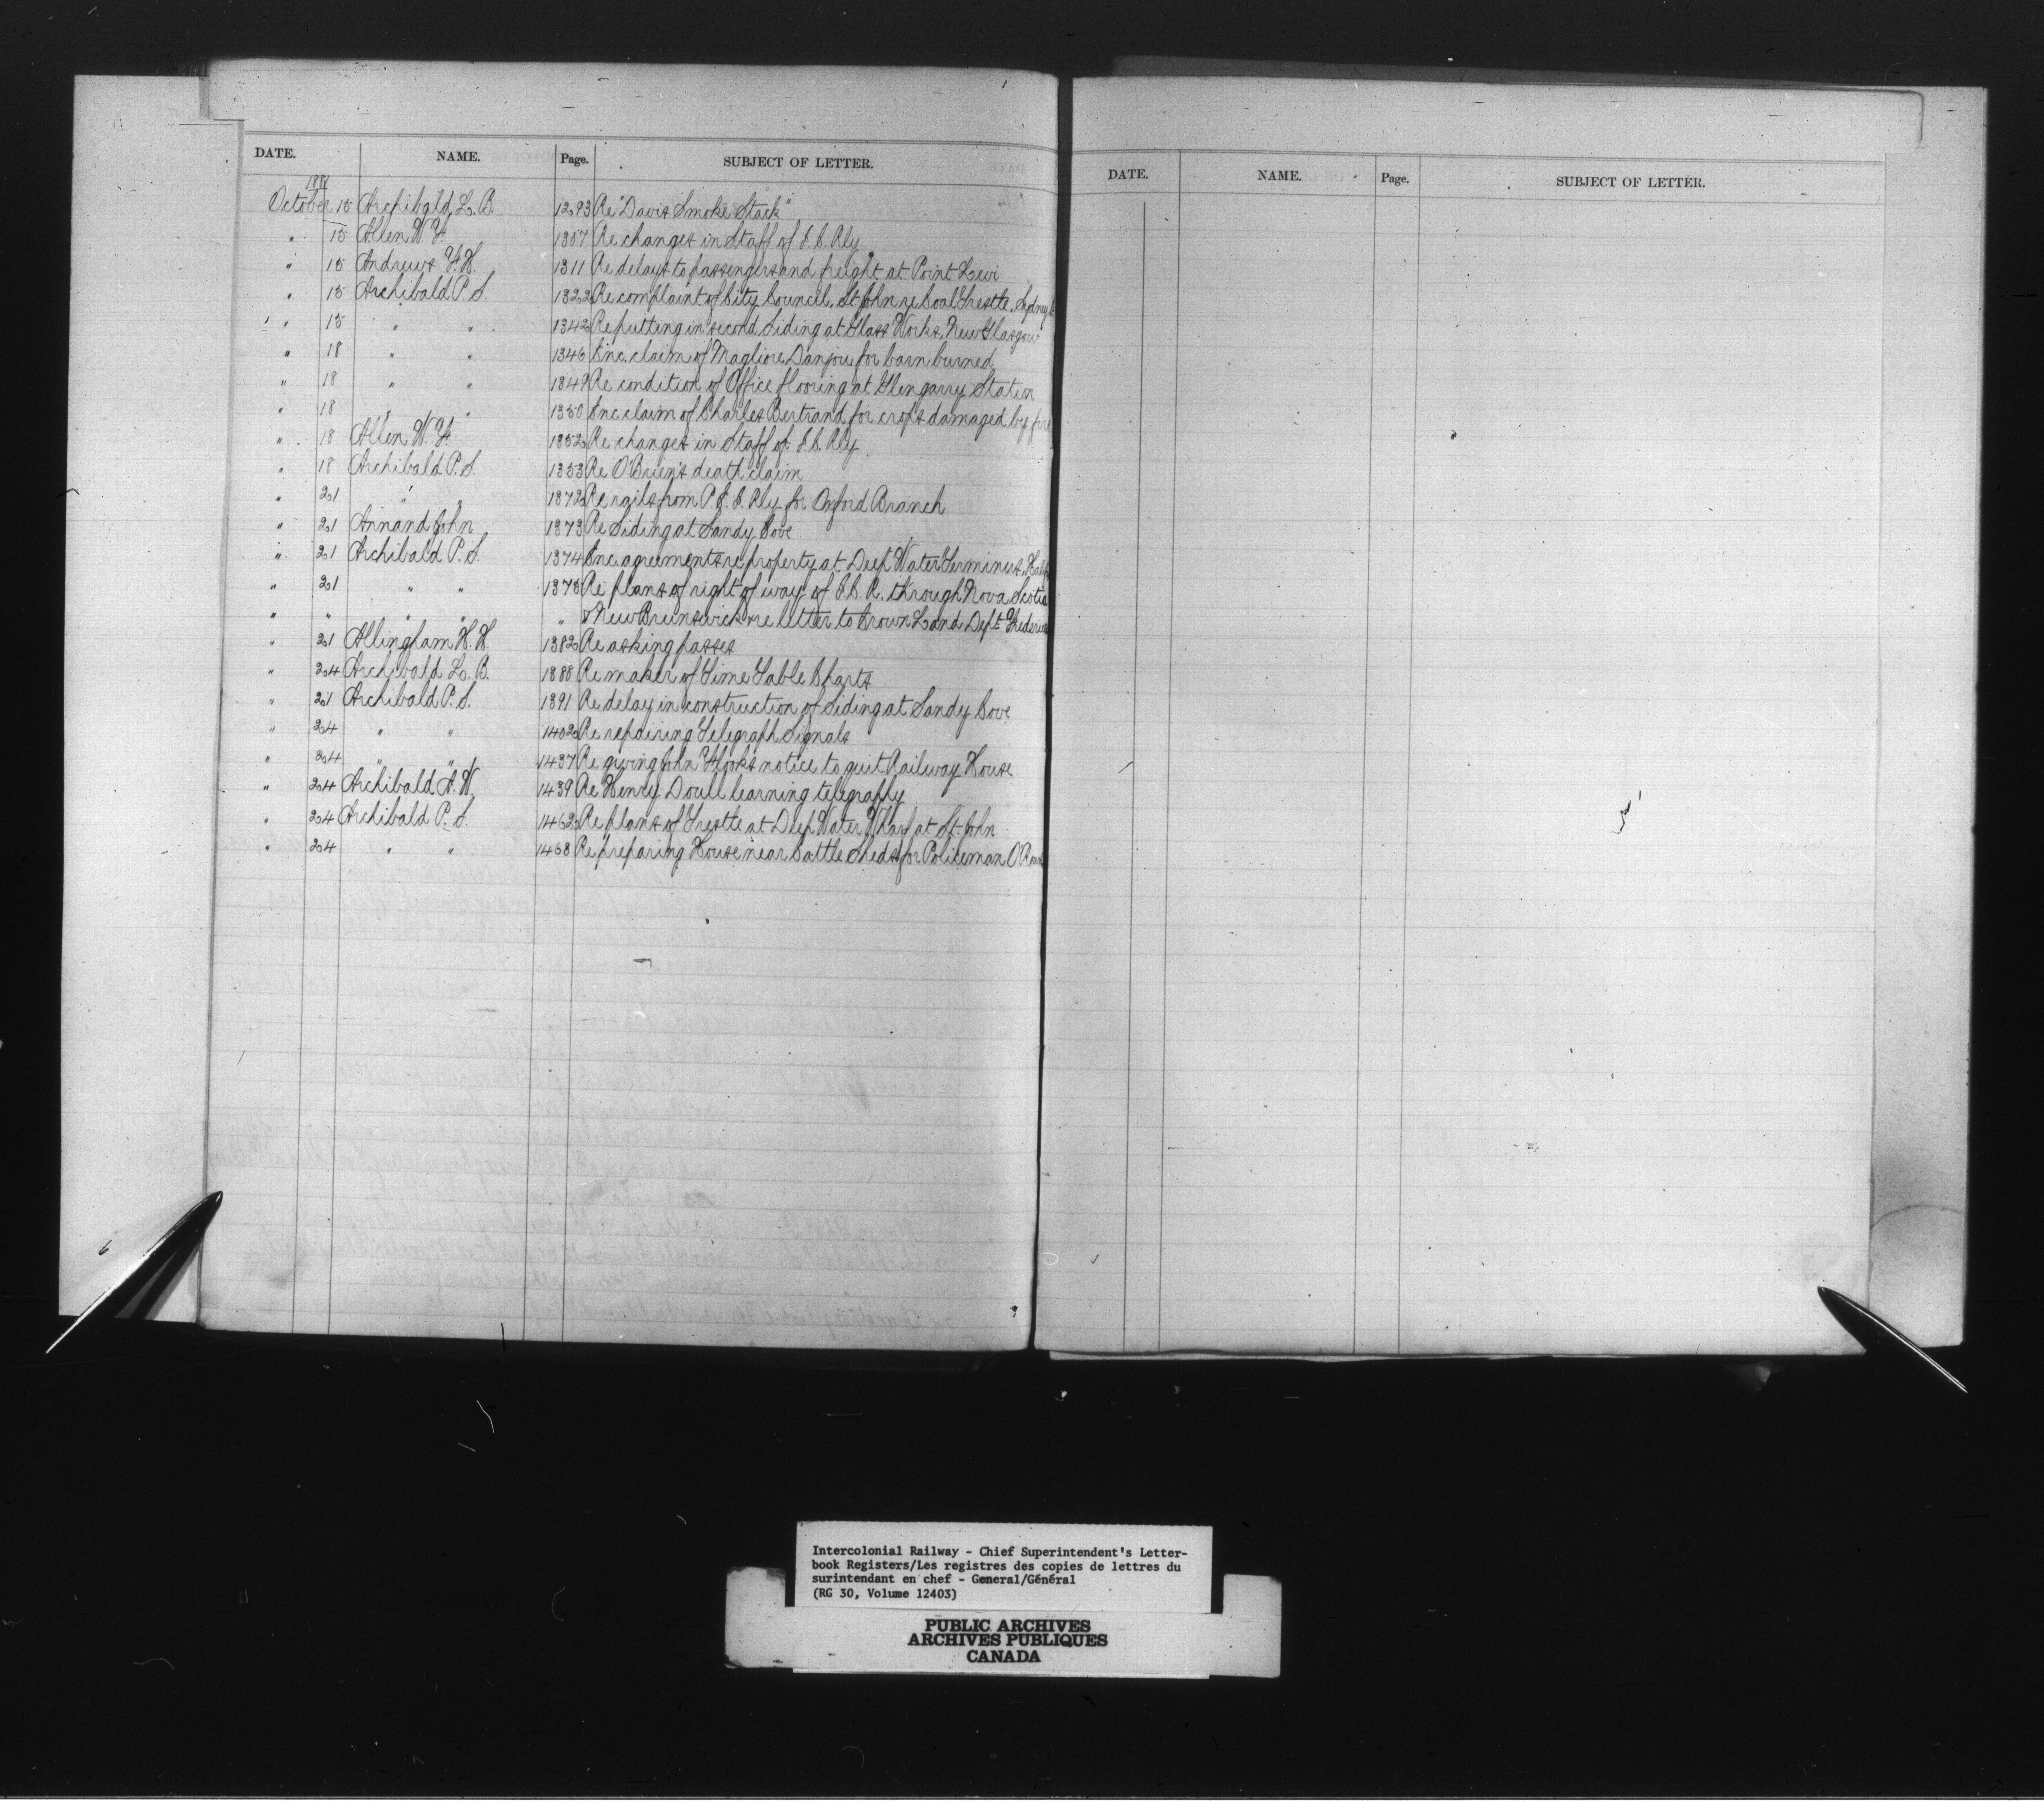 DATE. NAME. Page. SUBJECT OF LETTER.
1881
October 15 Archibald L. B. 1293 Re "Davis Smoke Stack"
" 15 Allen W. F. 1307 Re changes in Staff of I. C. Rly
" 15 Andrews F. H. 1311 Re delays to passengers and freight at Point Levi
" 15 Archibald P. S. 1322 Re complaint of City Council, St John re Coal Trestle, Sydney
" 15 " " 1342 Re putting in second Siding at Glass Works, New Glasgow
" 18 " " 1346 Enc. claim of Magliore Danjou for barn burned
" 18 " " 1349 Re condition of Office flooring at Glengarry Station
" 18 " " 1350 Enc. claim of Charles Bertrand for crops damaged by
" 18 Allen W. F. 1352 Re changes in Staff of I. C. Rly
" 18 Archibald P. S. 1353 Re O'Brien's death claim
" 21 " " 1372 Re rails from P. E. I. Rly for Oxford Branch
" 21 Annand John 1373 Re Siding at Sandy Cove
" 21 Archibald P. S. 1374 Enc. agreements re property at Deep Water Terminus,
" 21 " " 1375 Re plans of right of way of I. C. R. through Nova Scotia
" " " " " & New Brunswick re letter to Crown Land Dept.
" 21 Allingham H. H. 1382 Re asking passes
" 24 Archibald L. B. 1388 Re maker of Time Table Charts
" 21 Archibald P. S. 1391 Re delay in construction of Siding at Sandy Cove
" 24 " " 1402 Re repairing Telegraph Signals
" 24 " " 1437 Re giving John Flooks notice to quit Railway House
" 24 Archibald A. W. 1439 Re Henry Doull learning telegraphy
" 24 Archibald P. S. 1462 Re plans of Trestle at Deep Water Wharf at St. John
" 24 " " 1468 Re preparing House near Cattle Sheds for Policeman
DATE. NAME. Page. SUBJECT OF LETTER.
Intercolonial Railway - Chief Superintendent's Letter-
book Registers/Les registres des copies de lettres du
surintendant en chef - General/Général
(RG 30, Volume 12403)
PUBLIC ARCHIVES
ARCHIVES PUBLIQUES
CANADA